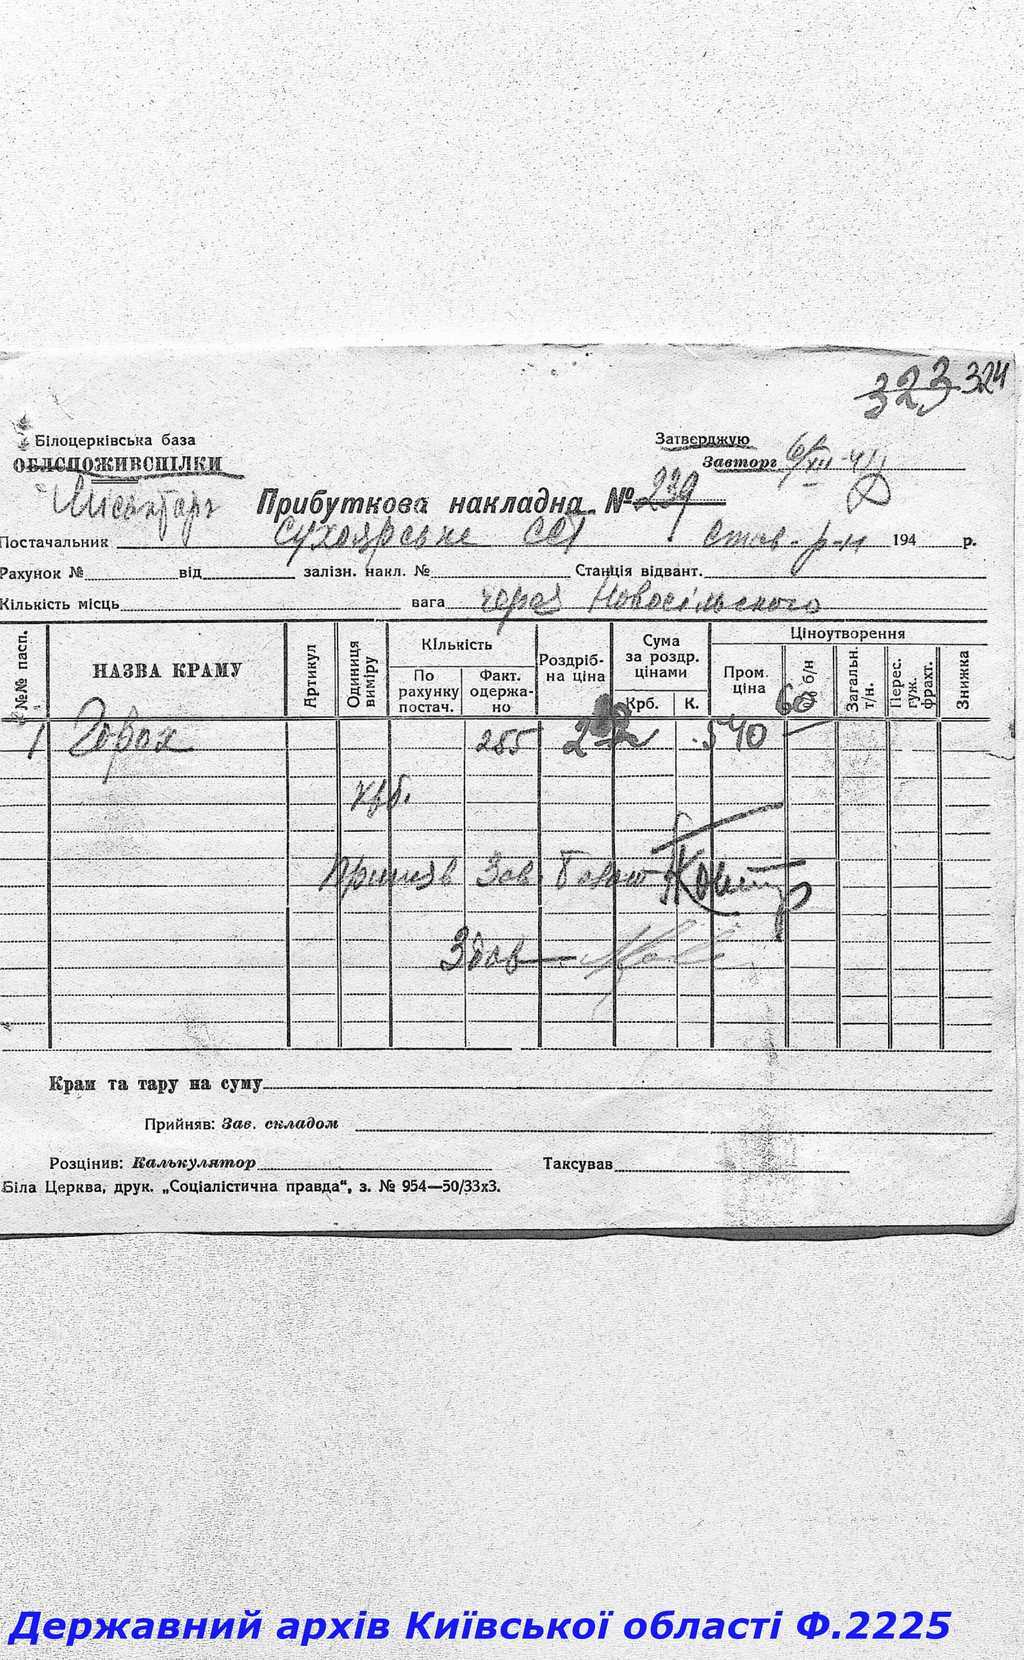 323 324
Білоцерківська база
ОБЛСПОЖИВСПІЛКИ
Затверджую
Завторг
Прибуткова накладна № 239
Постачальник Сухоярське ССТ Став. р-н 194 р.
Рахунок № від залізн. накл. № Станція відвант.
Кількість місць вага через Новосільського
№№ пасп. НАЗВА КРАМУ Артикул Одиниця виміру Кількість По рахунку постач. Факт. одержано Роздрібна ціна Сума за роздр. цінами Крб. К. Ціноутворення Пром. ціна % б/н Загальн. т/н. Перес. гуж. фрахт. Знижка
1 Горох 255 540 60
Прийняв Зав.
Здав
Крам та тару на суму
Прийняв: Зав. складом
Розцінив: Калькулятор Таксував
Біла Церква, друк. „Соціалістична правда“, з. № 954—50/33х3.
Державний архів Київської області Ф.2225